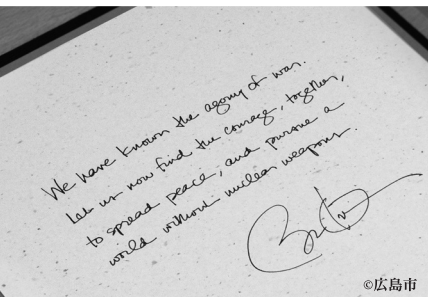 We have known the agony of war.
Let us now find the courage, together,
to spread peace, and pursue a
world without nuclear weapons.
©広島市